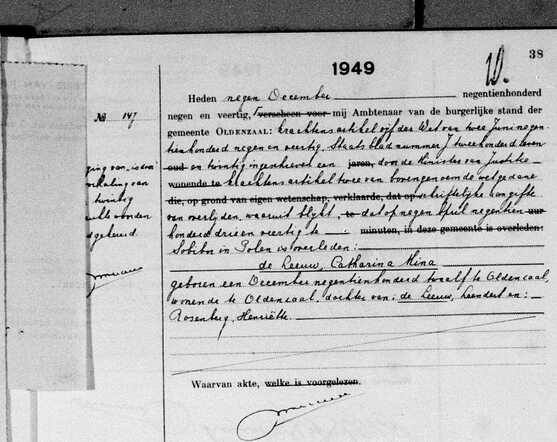 38
1949
10.
Heden negen December negentienhonderd
No 147
negen en veertig, verscheen voor mij Ambtenaar van de burgerlijke stand der
gemeente OLDENZAAL: krachtens artikel vijf der Wet van twee Juni negen
tienhonderd negen en veertig, Staatsblad nummer J tweehonderd zeven
oud en twintig ingeschreven een jaren, door de Minister van Justitie
wonende te krachtens artikel twee van bovengenoemde wet gedane
die, op grond van eigen wetenschap, verklaarde, dat op schriftelijke aangifte
van overlijden, waaruit blijkt, te dat op negen April negentien uur
honderd drie en veertig te minuten, in deze gemeente is overleden:
Sobibor in Polen is overleden:
de Leeuw, Catharina Mina
geboren een December negentienhonderd twaalf te Oldenzaal,
wonende te Oldenzaal, dochter van: de Leeuw, Leendert en:
Rosenberg, Henriëtte.
Waarvan akte, welke is voorgelezen.
twintig